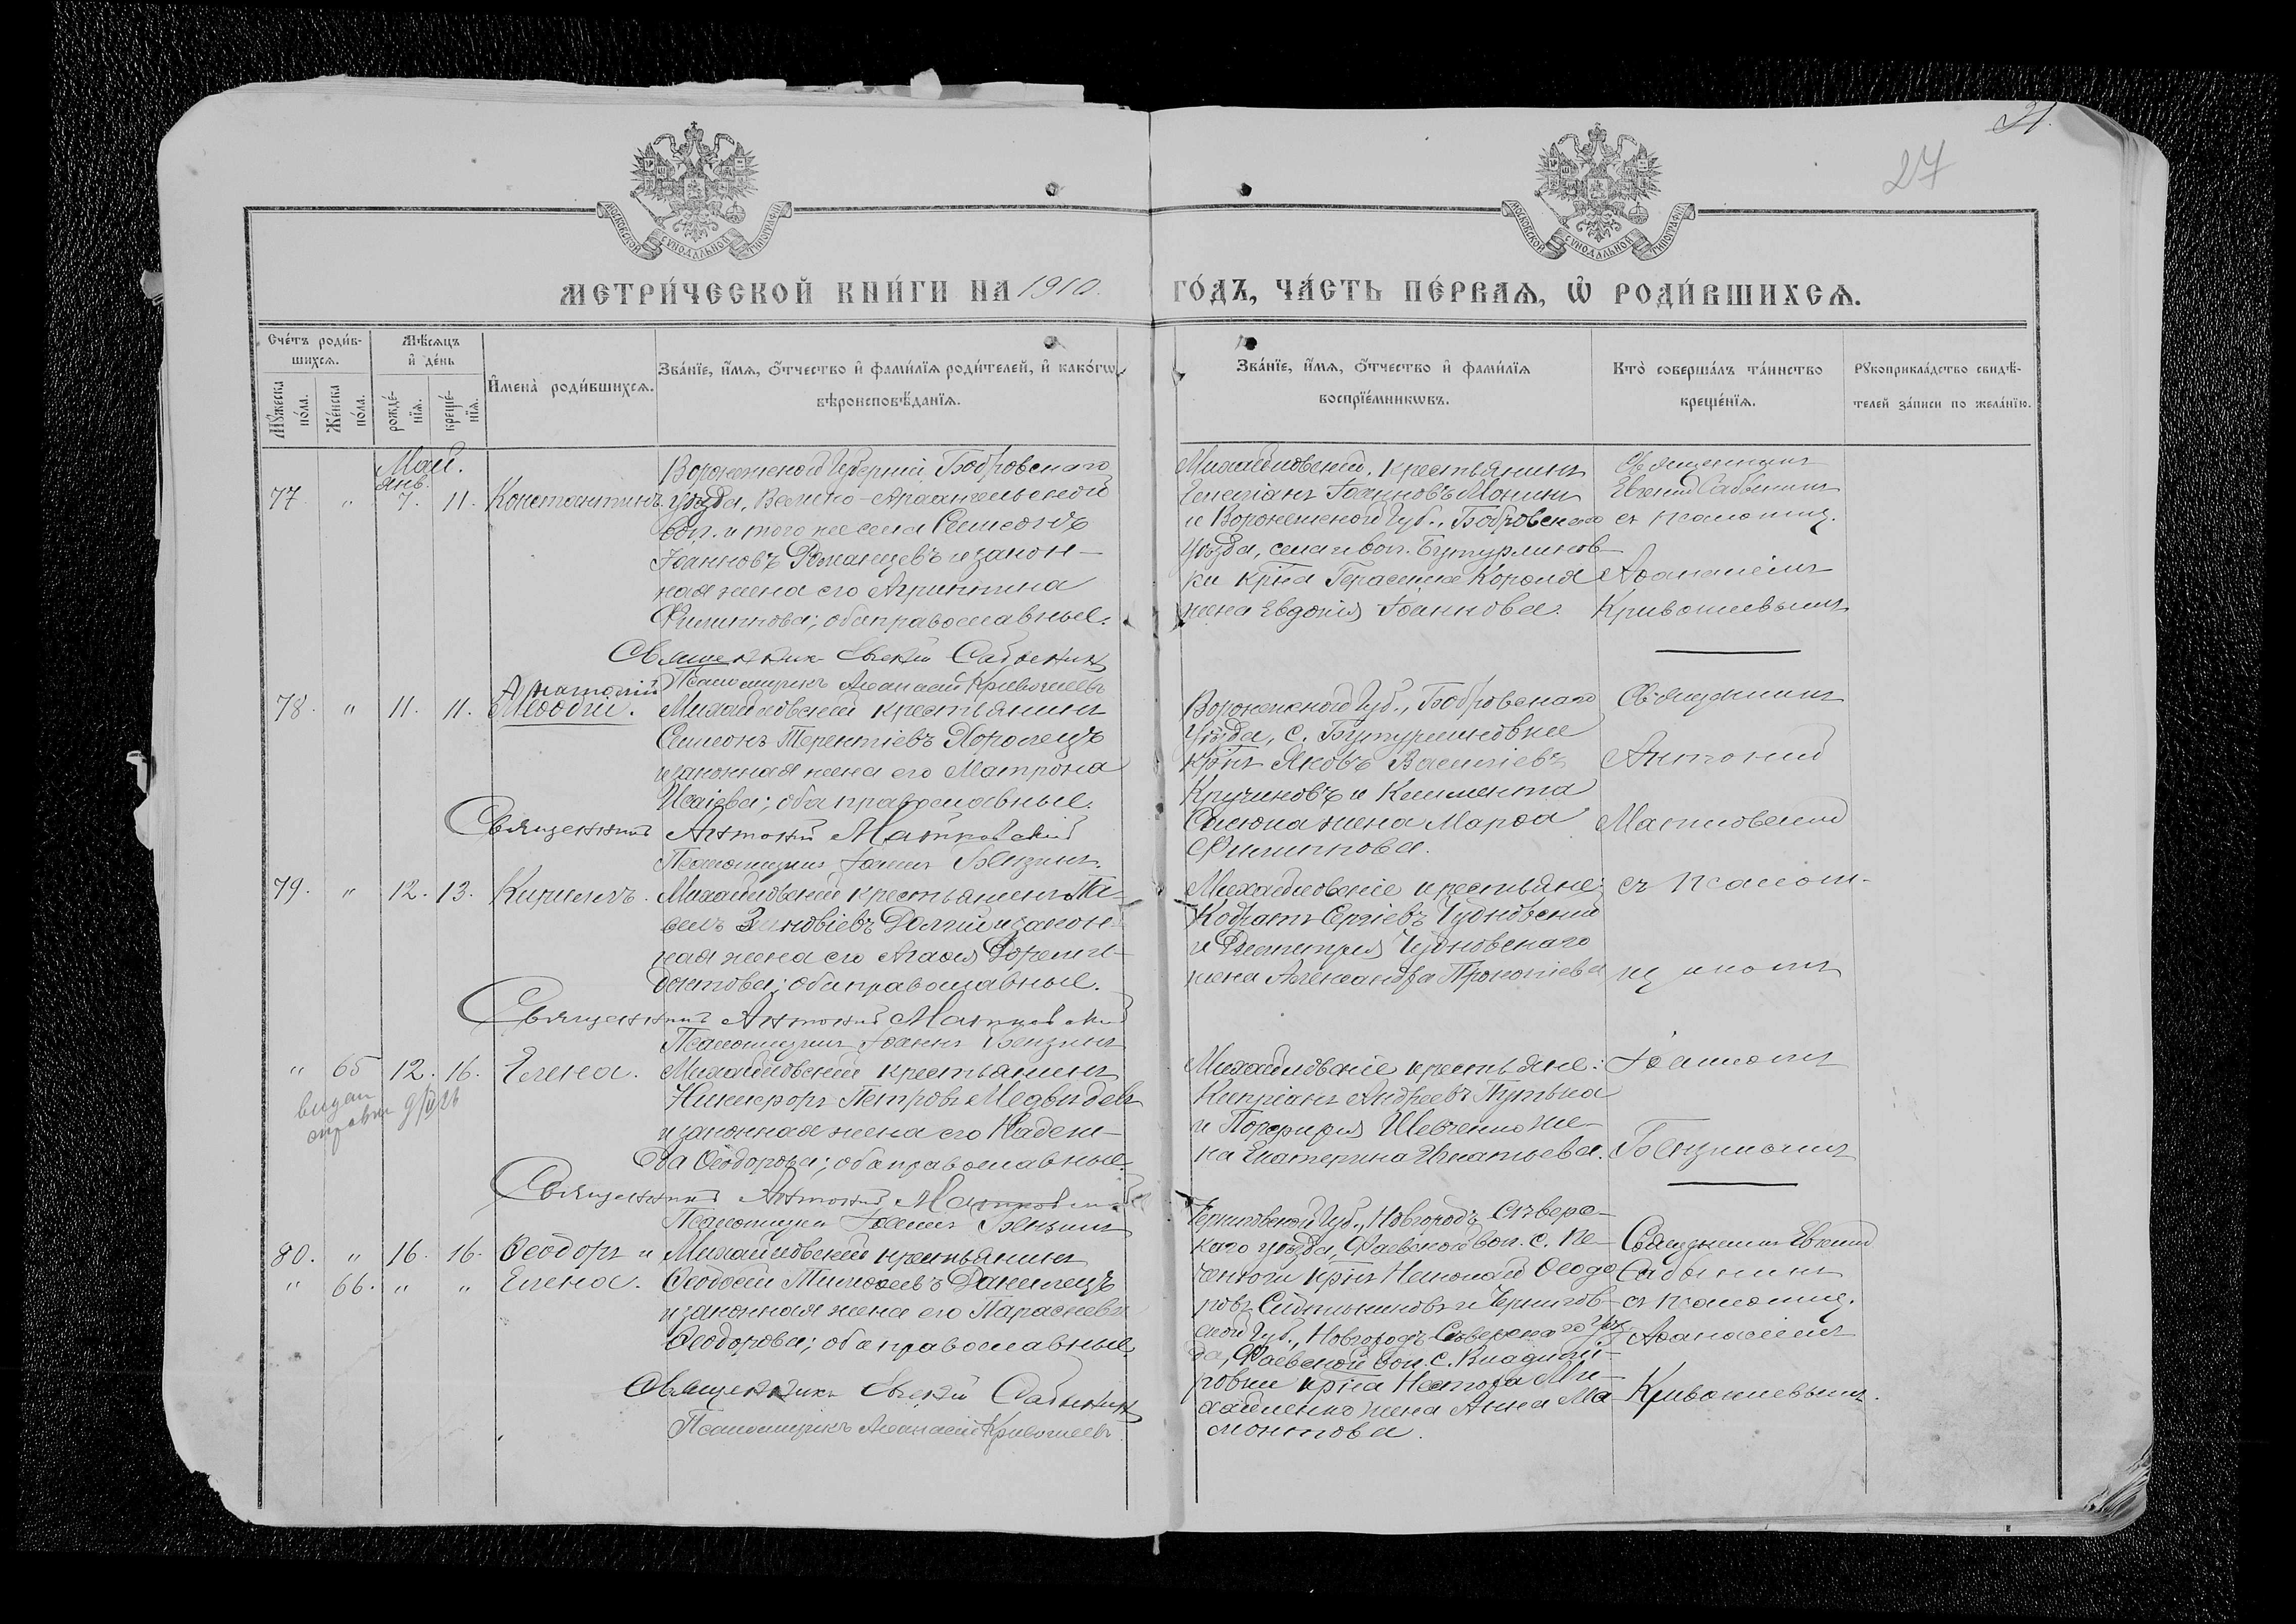 31.
27
МОСКОВСКОЙ СѴНОДАЛЬНОЙ ТИПОГРАФІИ
МОСКОВСКОЙ СѴНОДАЛЬНОЙ ТИПОГРАФІИ
МЕТРИ́ЧЕСКОЙ КНИ́ГИ НА 1910. ГО́ДЪ, ЧА́СТЬ ПЕ́РВАѦ, Ѡ҆ РОДИ́ВШИХСѦ.
Сче́тъ роди́в-
шихсѧ.
Мѣ́сѧцъ
и҆ де́нь
Мꙋ́жеска по́ла.
Же́нска по́ла.
рожде́-нїѧ.
креще́-нїѧ.
И҆мена̀ роди́вшихсѧ.
Зва́нїе, и҆́мѧ, ѻ҆́тчество и҆ фами́лїѧ роди́телей, и҆ како́гѡ
вѣроисповѣ́данїѧ.
Зва́нїе, и҆́мѧ, ѻ҆́тчество и҆ фами́лїѧ
воспрїе́мникѡвъ.
Кто̀ соверша́лъ та́инство
креще́нїѧ.
Рꙋкоприкла́дство свидѣ́-
телей за́писи по жела́нїю.
Май.
янв.
77. " 7. 11. Константинъ.
Воронежской Губерніи, Бобровскаго
уѣзда, Велико-Архангельской
вол. и того же села Симеонъ
Іоанновъ Рожанцевъ и закон-
ная жена его Агриппина
Филиппова; оба православные.
Священникъ Евгеній Сабынинъ
Псаломщикъ Аѳанасій Кривошеевъ
Михайловскій, крестьянинъ
Іоанновъ Монинъ
и Воронежской Губ., Бобровскаго
уѣзда, села и вол. Бутурлинов-
ки кр-на Герасима Короля
жена Евдокія Іоаннова.
Священникъ
Евгеній Сабынинъ
съ псаломщ.
Аѳанасіемъ
Кривошеевымъ
78. " 11. 11. Анатолій
Меѳодій.
Михайловскій крестьянинъ
Симеонъ Терентіевъ Хоролецъ
и законная жена его Матрона
Исаіева; оба православные.
Священникъ Антоній Матковскій
Псаломщикъ Іоаннъ Бензинъ.
Воронежской Губ., Бобровскаго
Уѣзда, с. Бутурлиновки
кр-нъ Яковъ Василіевъ
Кручиновъ и Климента
жена Марѳа
Филиппова.
Священникъ
Антоній
Матковскій
79. " 12. 13. Кириллъ.
Михайловскій крестьянинъ Па-
велъ Зиновіевъ Долгій и закон-
ная жена его Агаѳія Дорими-
донтова; оба православные.
Священникъ Антоній Матковскій
Псаломщикъ Іоаннъ Бензинъ
Михайловскіе крестьяне:
Кодратъ Сергіевъ Чудновскій
и Димитрія Чудновскаго
жена Александра Прокопіева
съ псалом-
щикомъ
" 65 12. 16. Елена.
выдан
справка
Михайловскій крестьянинъ
Никифоръ Петровъ Медвѣдевъ
и законная жена его Надеж-
да Ѳеодорова; оба православные.
Священникъ Антоній Матковскій
Псаломщикъ Іоаннъ Бензинъ
Михайловскіе крестьяне:
Кипріанъ Андреевъ Путька
и Порфирія Шевченко же-
на Екатерина Игнатьева.
Іоанномъ
Бензиномъ
80. " 16. 16. Ѳеодоръ и
" 66. " " Елена.
Михайловскій крестьянинъ
Ѳеодосій Тимоѳеевъ Данилецъ
и законная жена его Параскева
Ѳеодорова; оба православные.
Священникъ Евгеній Сабынинъ
Псаломщикъ Аѳанасій Кривошеевъ
Черниговской Губ., Новгородъ Сѣверс-
каго уѣзда, Фаевской вол. с. Пе-
ченюги кр-нъ Николай Ѳеодо
ровъ Сидѣльниковъ и Чернигов-
ской Губ., Новгородъ Сѣверскаго уѣз
да, Фаевской вол. с. Владими-
ровки кр-на Нестора Ми-
хайленко жена Анна Ма-
монтова.
Священник Евгеній
Сабынинъ
съ псаломщ.
Аѳанасіемъ
Кривошеевымъ.